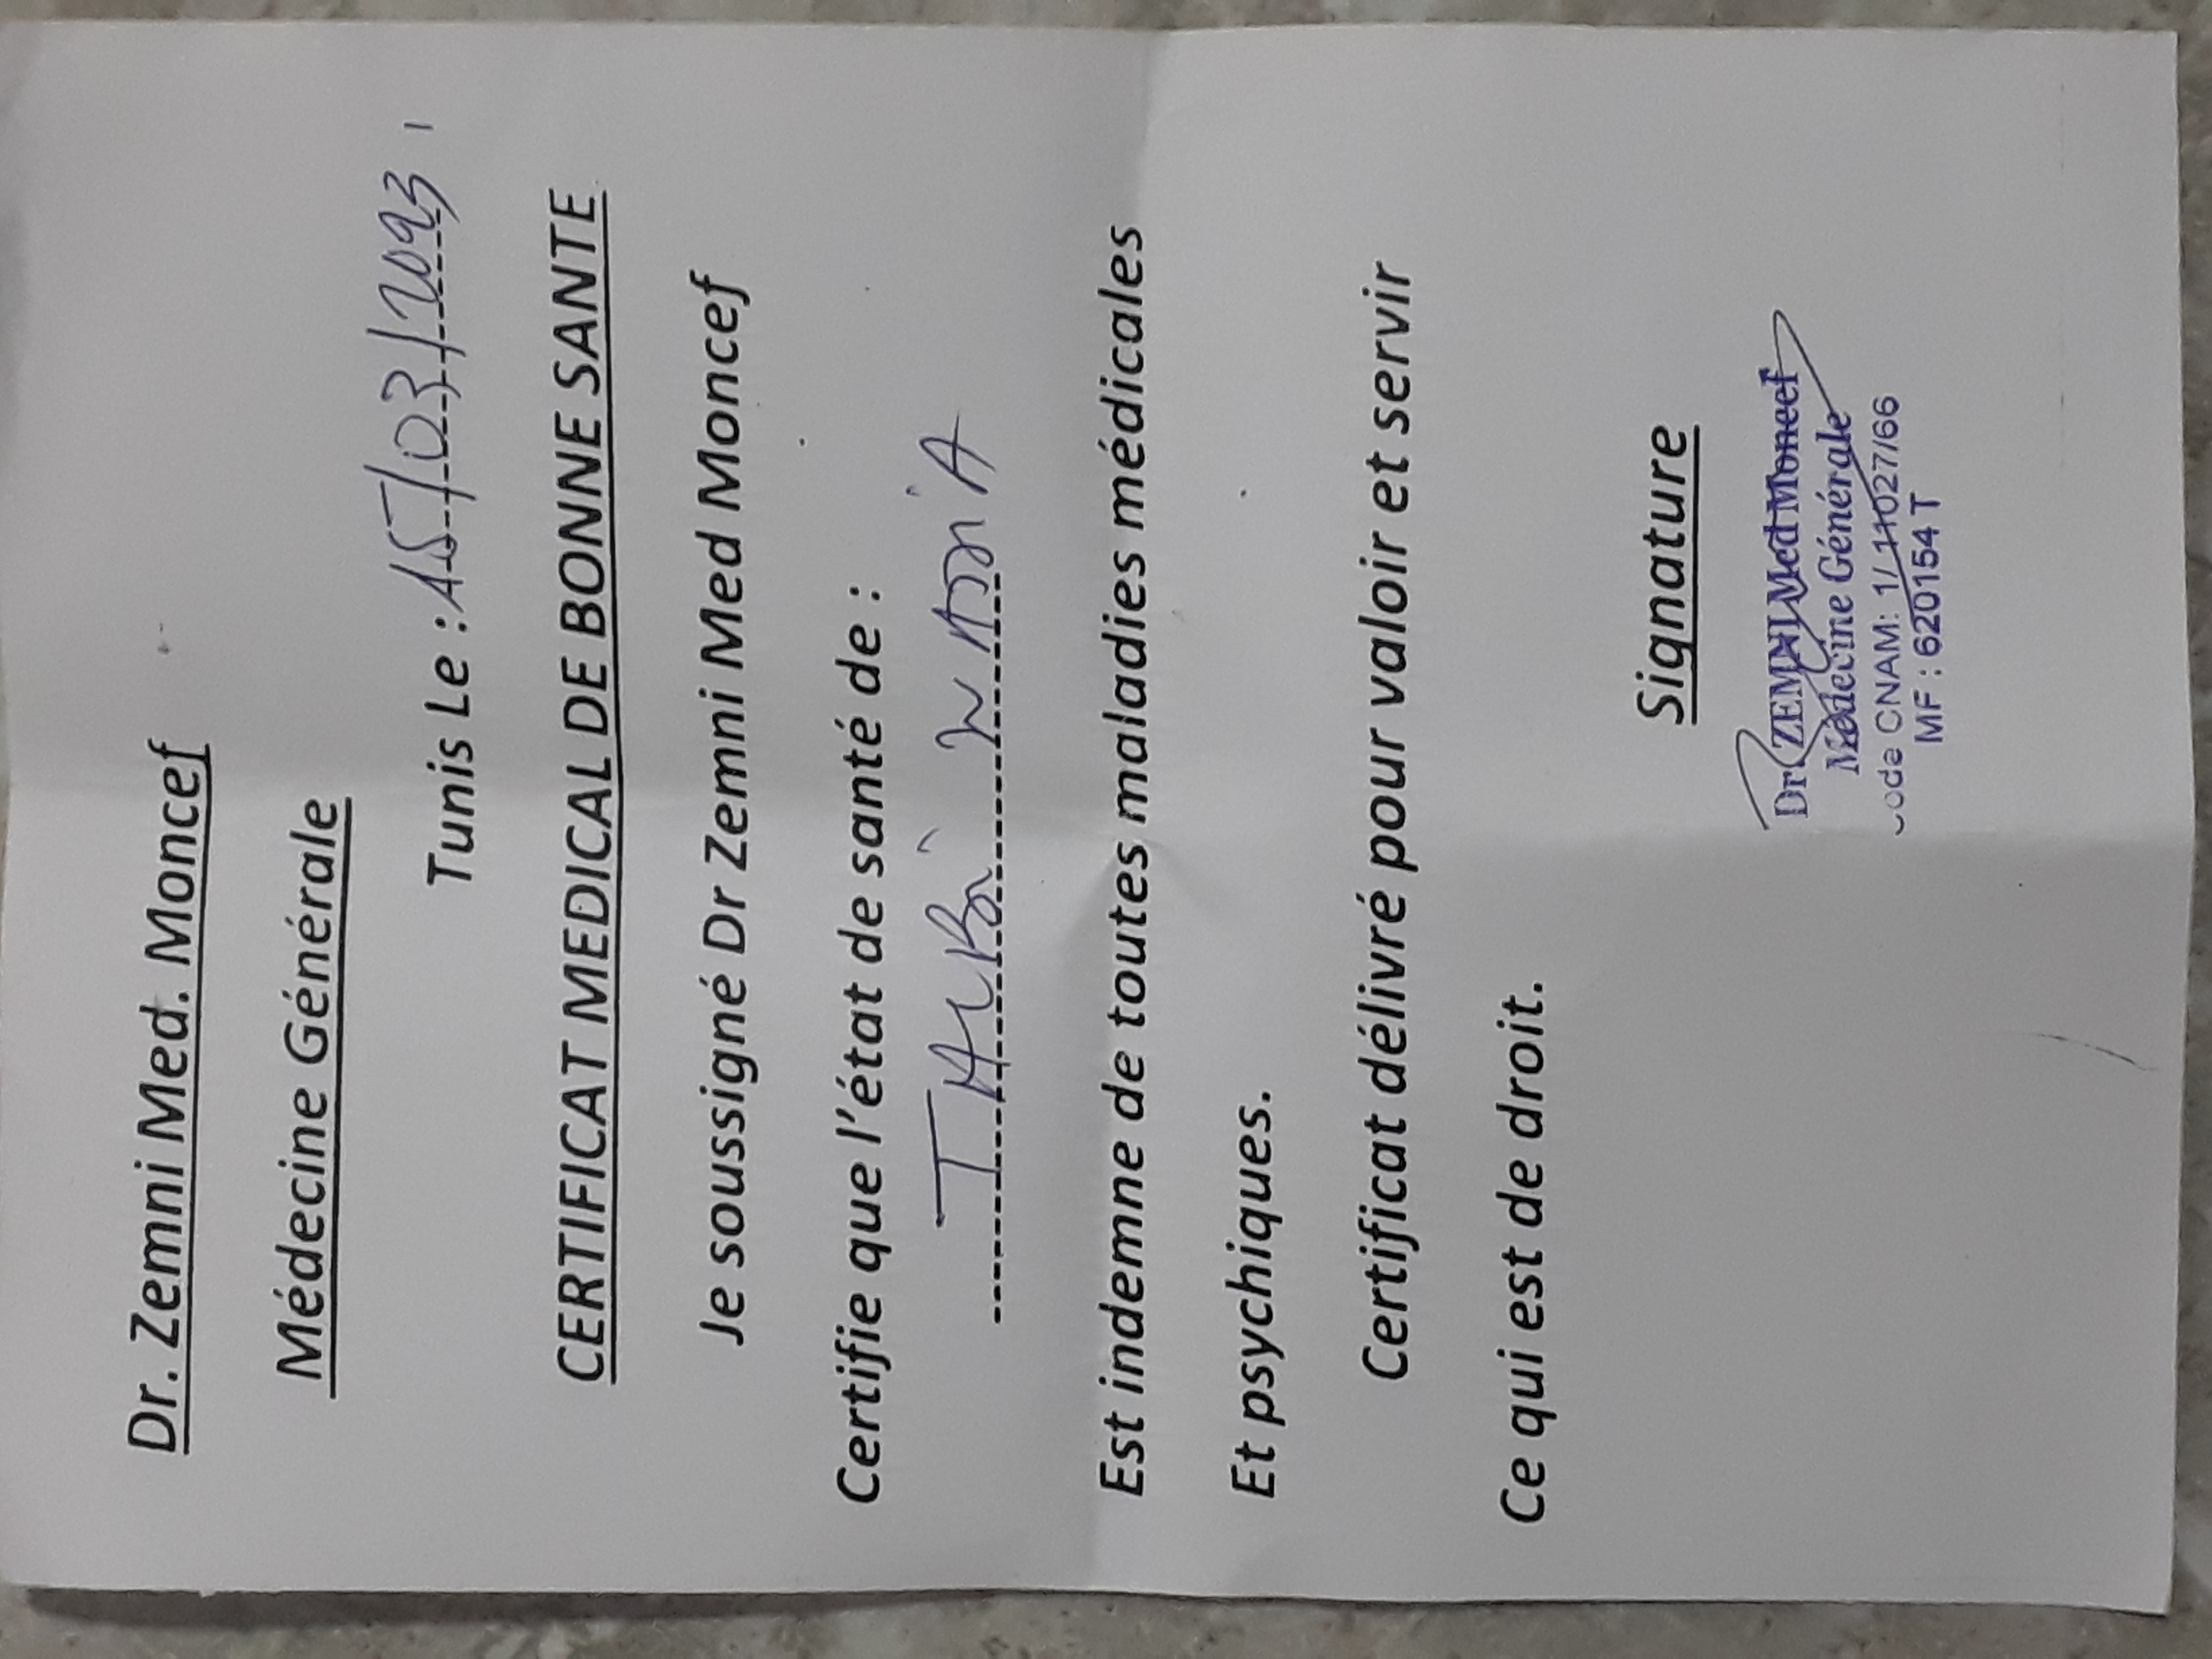 Dr. Zemni Med. Moncef
Médecine Générale
Tunis Le : 15/03/2023
CERTIFICAT MEDICAL DE BONNE SANTE
Je soussigné Dr Zemni Med Moncef
Certifie que l'état de santé de :
Est indemne de toutes maladies médicales
Et psychiques.
Certificat délivré pour valoir et servir
Ce qui est de droit.
Signature
Dr. ZEMNI Med Moncef
Médecine Générale
Code CNAM: 1/11027/66
MF : 620154 T